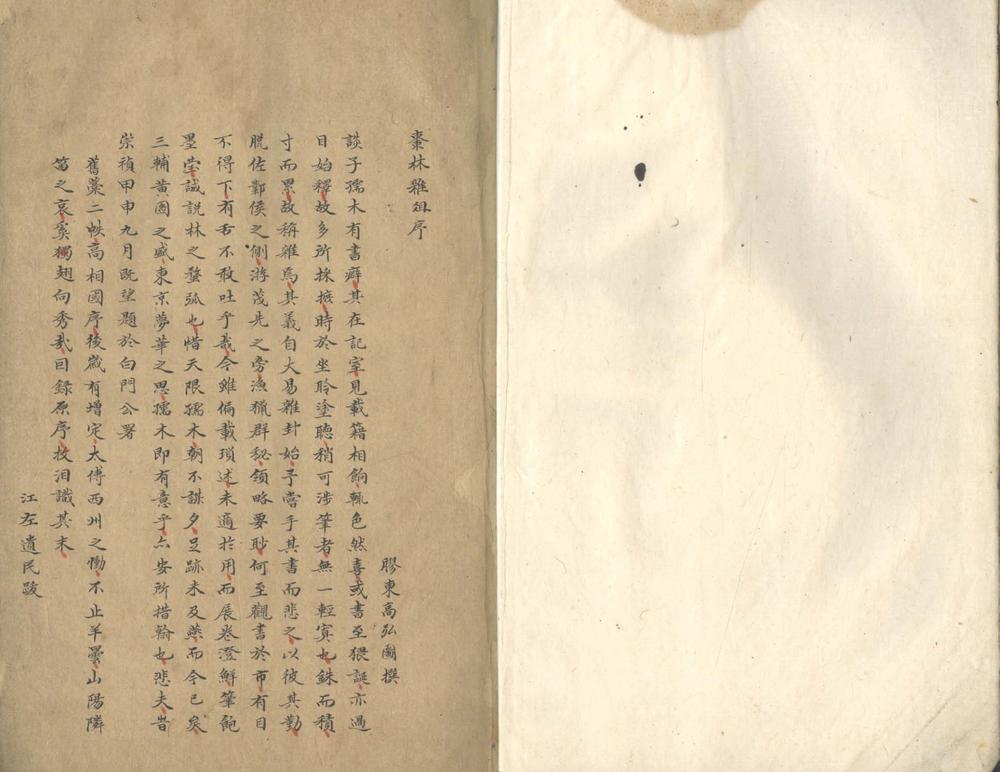 棗林雜俎序
膠東高弘圖撰
談子孺木有書癖其在記室見載籍相餉輒色然喜或書至猥誕亦過
目始釋故多所採摭時於坐聆塗聽稍可涉筆者無一輕寘也銖而積
寸而累故稱雜焉其義自大易雜卦始予嘗手其書而悲之以彼其勤
脫佐酇侯之側游茂先之旁漁獵群秘領略要眇何至觀書於市有目
不得下有舌不敢吐乎哉今雖偏載瑣述未適於用而展卷澄鮮筆飽
墨瑩誠說林之蝥弧也惜天限孺木朝不謀夕足跡未及燕而今已矣
三輔黃圖之盛東京夢華之思孺木即有意乎亦安所措翰也悲夫旹
崇禎甲申九月既望題於白門公署
舊藁二帙高相國序後嵗有增定太傅西州之慟不止羊曇山陽隣
笛之哀奚獨翅向秀哉回錄原序抆泪識其末
江左遺民跋